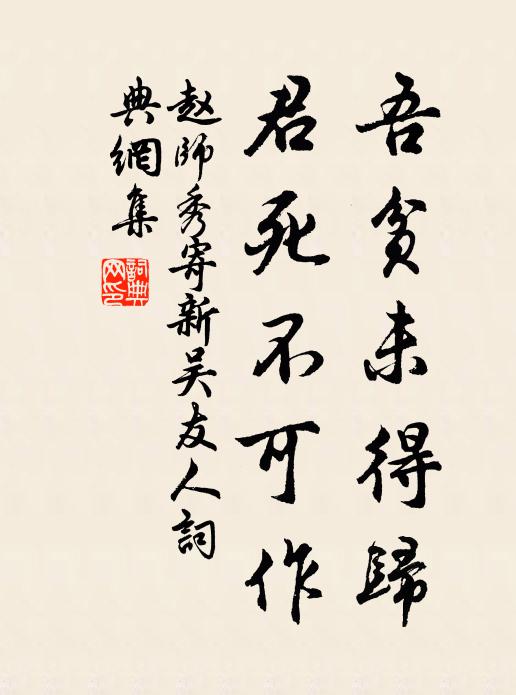 吾貧未得歸
君死不可作
赵師秀寄新吴友人詞
典網集
詞典网印